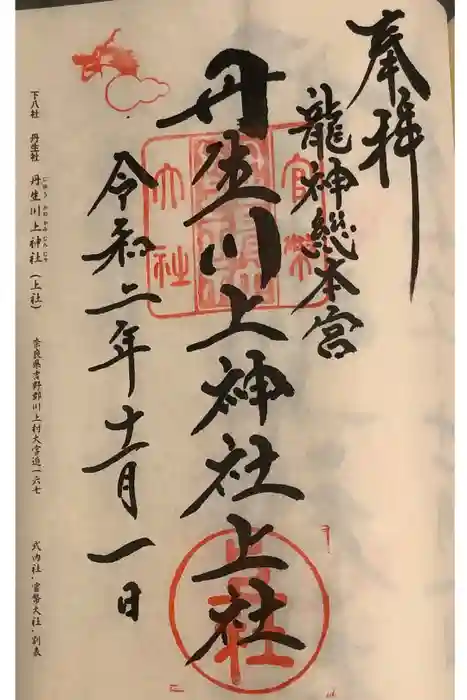 奉拝
龍神総本宮
丹生川上神社上社
令和二年十一月一日
官幣
大社
下八社 丹生社 丹生川上神社(上社) 奈良県吉野郡川上村大字迫一六七 式内社・官幣大社・別表